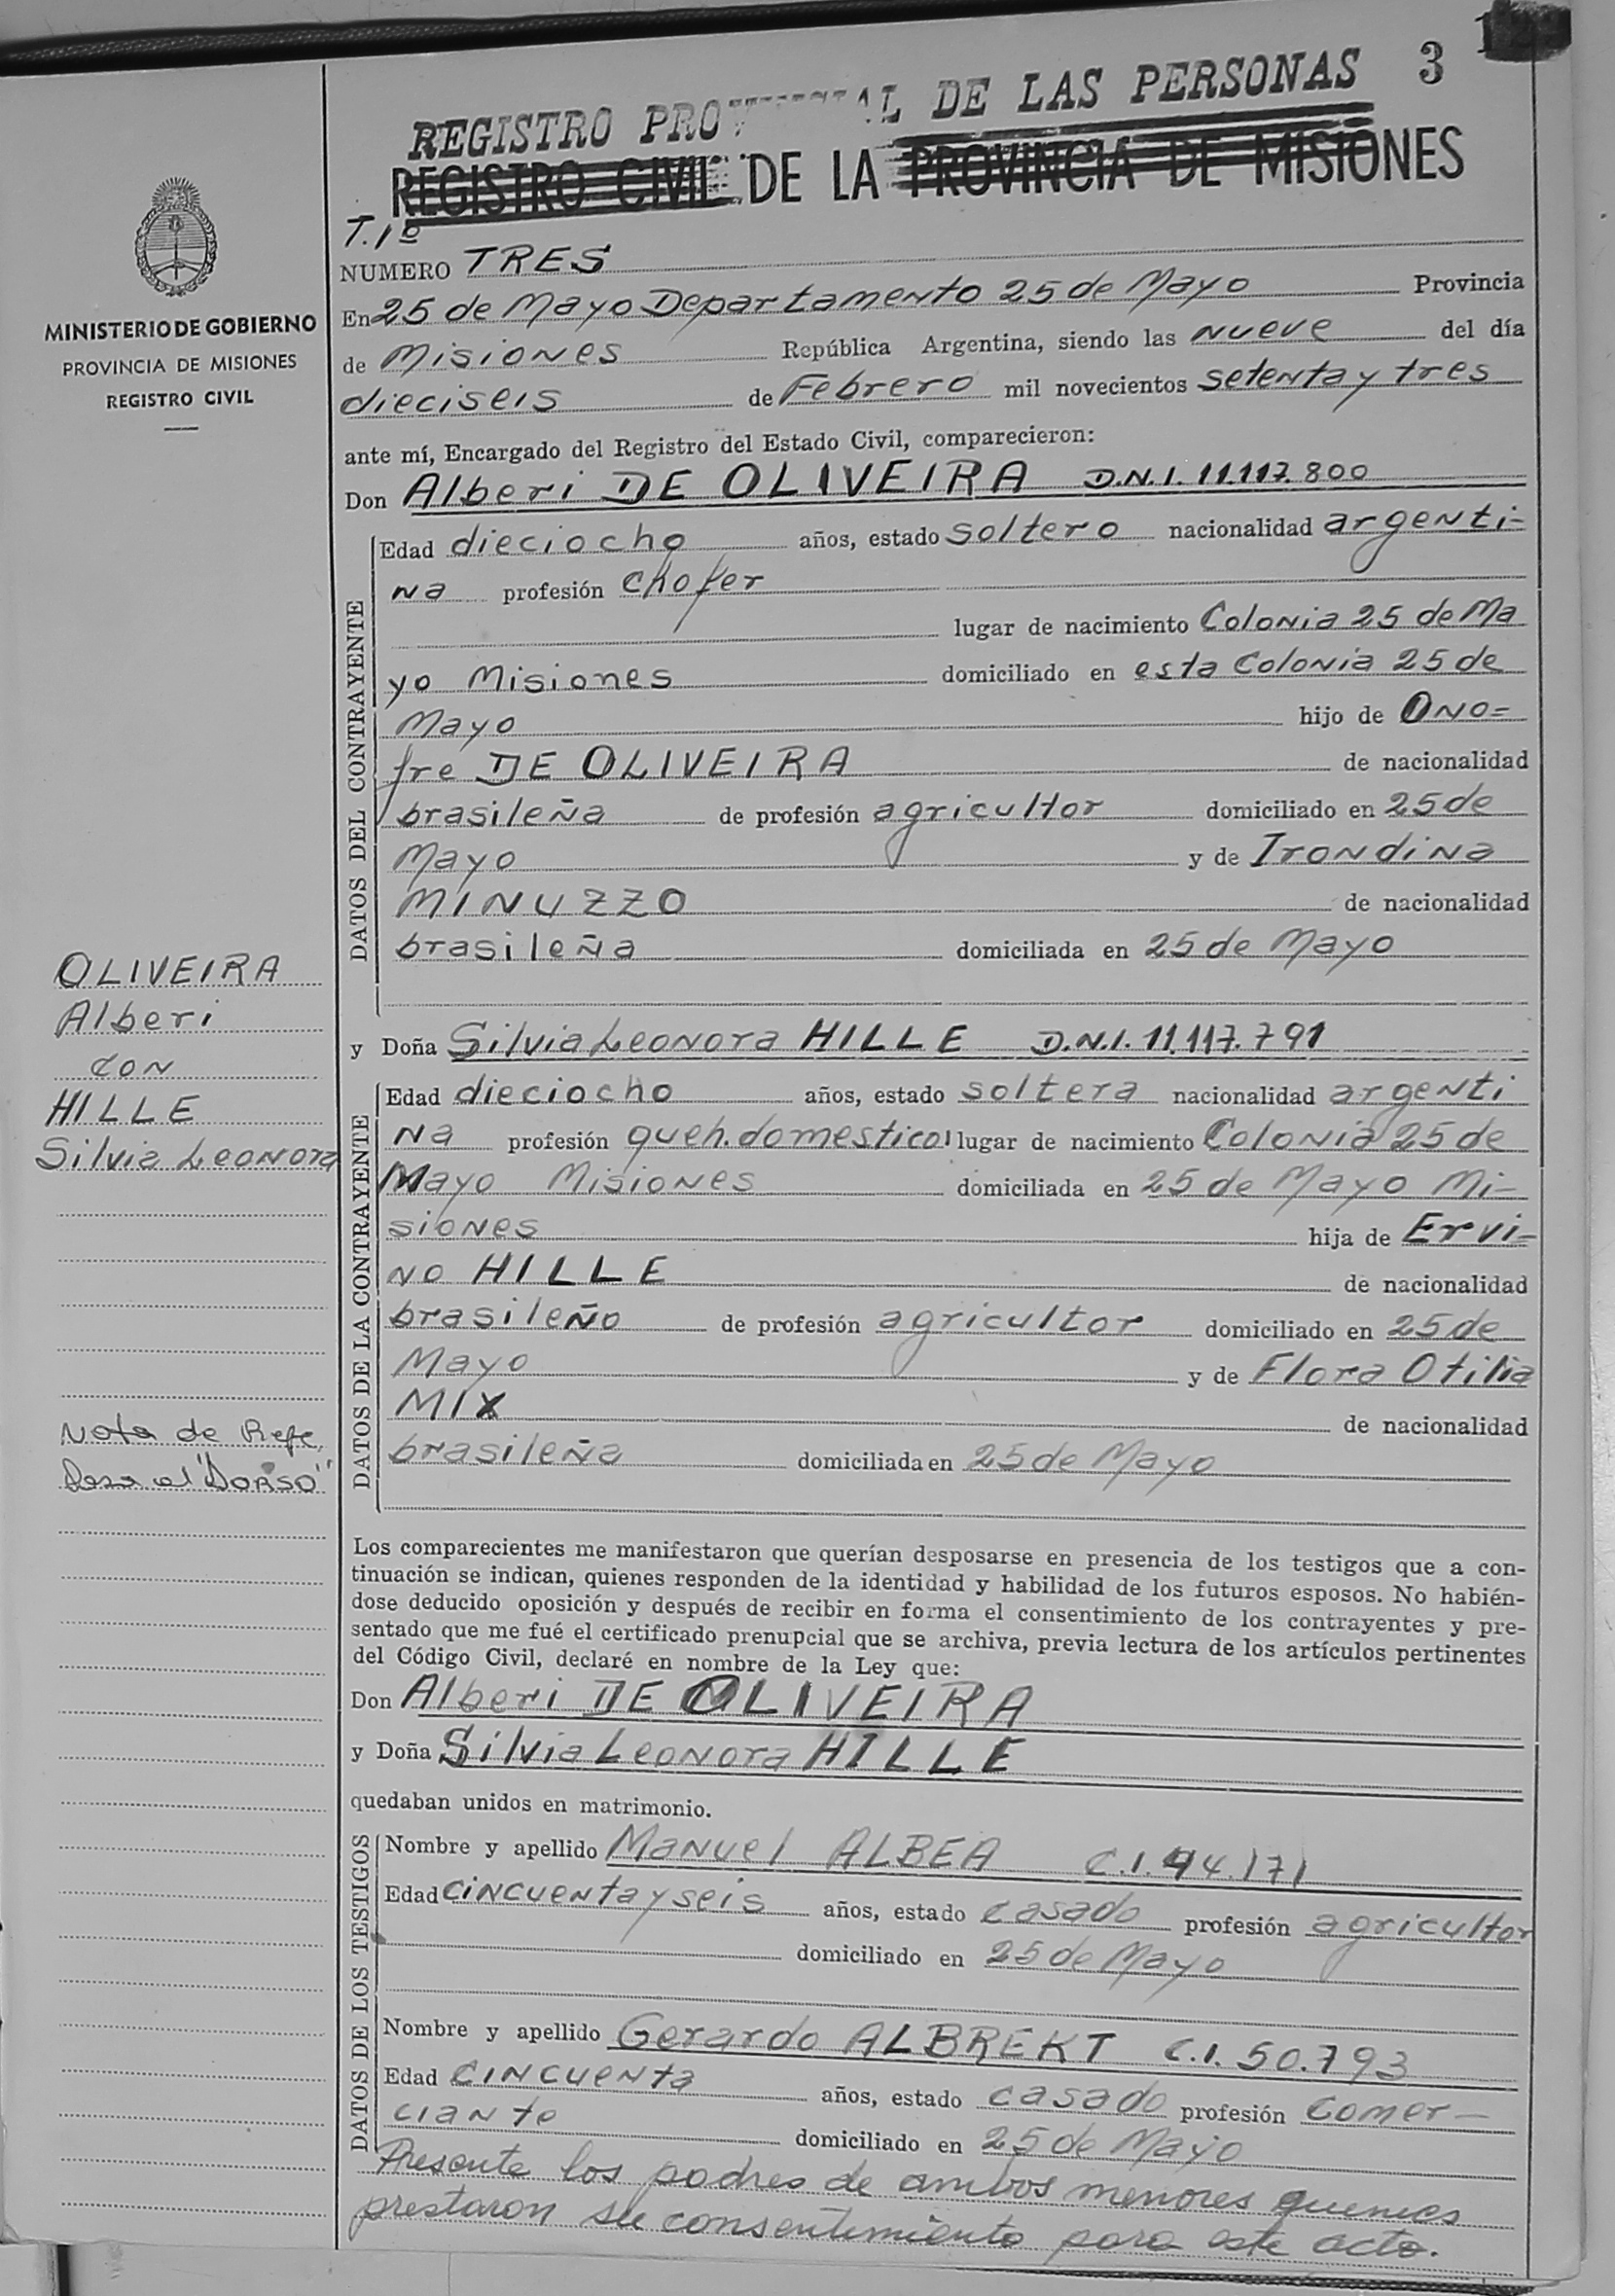 REGISTRO PROVINCIAL DE LAS PERSONAS 3
REGISTRO CIVIL DE LA PROVINCIA DE MISIONES
MINISTERIO DE GOBIERNO
PROVINCIA DE MISIONES
REGISTRO CIVIL
T. 1º
NUMERO TRES
En 25 de Mayo Departamento 25 de Mayo Provincia
de Misiones República Argentina, siendo las nueve del día
dieciseis de Febrero mil novecientos setenta y tres
ante mí, Encargado del Registro del Estado Civil, comparecieron:
Don Alberi DE OLIVEIRA D.N.I. 11.117.800
DATOS DEL CONTRAYENTE
Edad dieciocho años, estado soltero nacionalidad argenti-
na profesión chofer
lugar de nacimiento Colonia 25 de Ma
yo Misiones domiciliado en esta Colonia 25 de
Mayo hijo de Ono=
fre DE OLIVEIRA de nacionalidad
brasileña de profesión agricultor domiciliado en 25 de
Mayo y de Irondina
MINUZZO de nacionalidad
brasileña domiciliada en 25 de Mayo
OLIVEIRA
Alberi
con
HILLE
Silvia Leonora
y Doña Silvia Leonora HILLE D.N.I. 11.117.791
DATOS DE LA CONTRAYENTE
Edad dieciocho años, estado soltera nacionalidad argenti
na profesión queh. domestico lugar de nacimiento Colonia 25 de
Mayo Misiones domiciliada en 25 de Mayo Mi-
siones hija de Ervi-
no HILLE de nacionalidad
brasileño de profesión agricultor domiciliado en 25 de
Mayo y de Flora Otilia
MIX de nacionalidad
brasileña domiciliada en 25 de Mayo
Nota de Refe.
al "DORSO"
Los comparecientes me manifestaron que querían desposarse en presencia de los testigos que a con-
tinuación se indican, quienes responden de la identidad y habilidad de los futuros esposos. No habién-
dose deducido oposición y después de recibir en forma el consentimiento de los contrayentes y pre-
sentado que me fué el certificado prenupcial que se archiva, previa lectura de los artículos pertinentes
del Código Civil, declaré en nombre de la Ley que:
Don Alberi DE OLIVEIRA
y Doña Silvia Leonora HILLE
quedaban unidos en matrimonio.
DATOS DE LOS TESTIGOS
Nombre y apellido Manuel ALBEA C.I. 94.171
Edad cincuenta y seis años, estado casado profesión agricultor
domiciliado en 25 de Mayo
Nombre y apellido Gerardo ALBREKT C.I. 50.793
Edad cincuenta años, estado casado profesión comer-
ciante domiciliado en 25 de Mayo
Presente los padres de ambos menores quienes
prestaron su consentimiento para este acto.